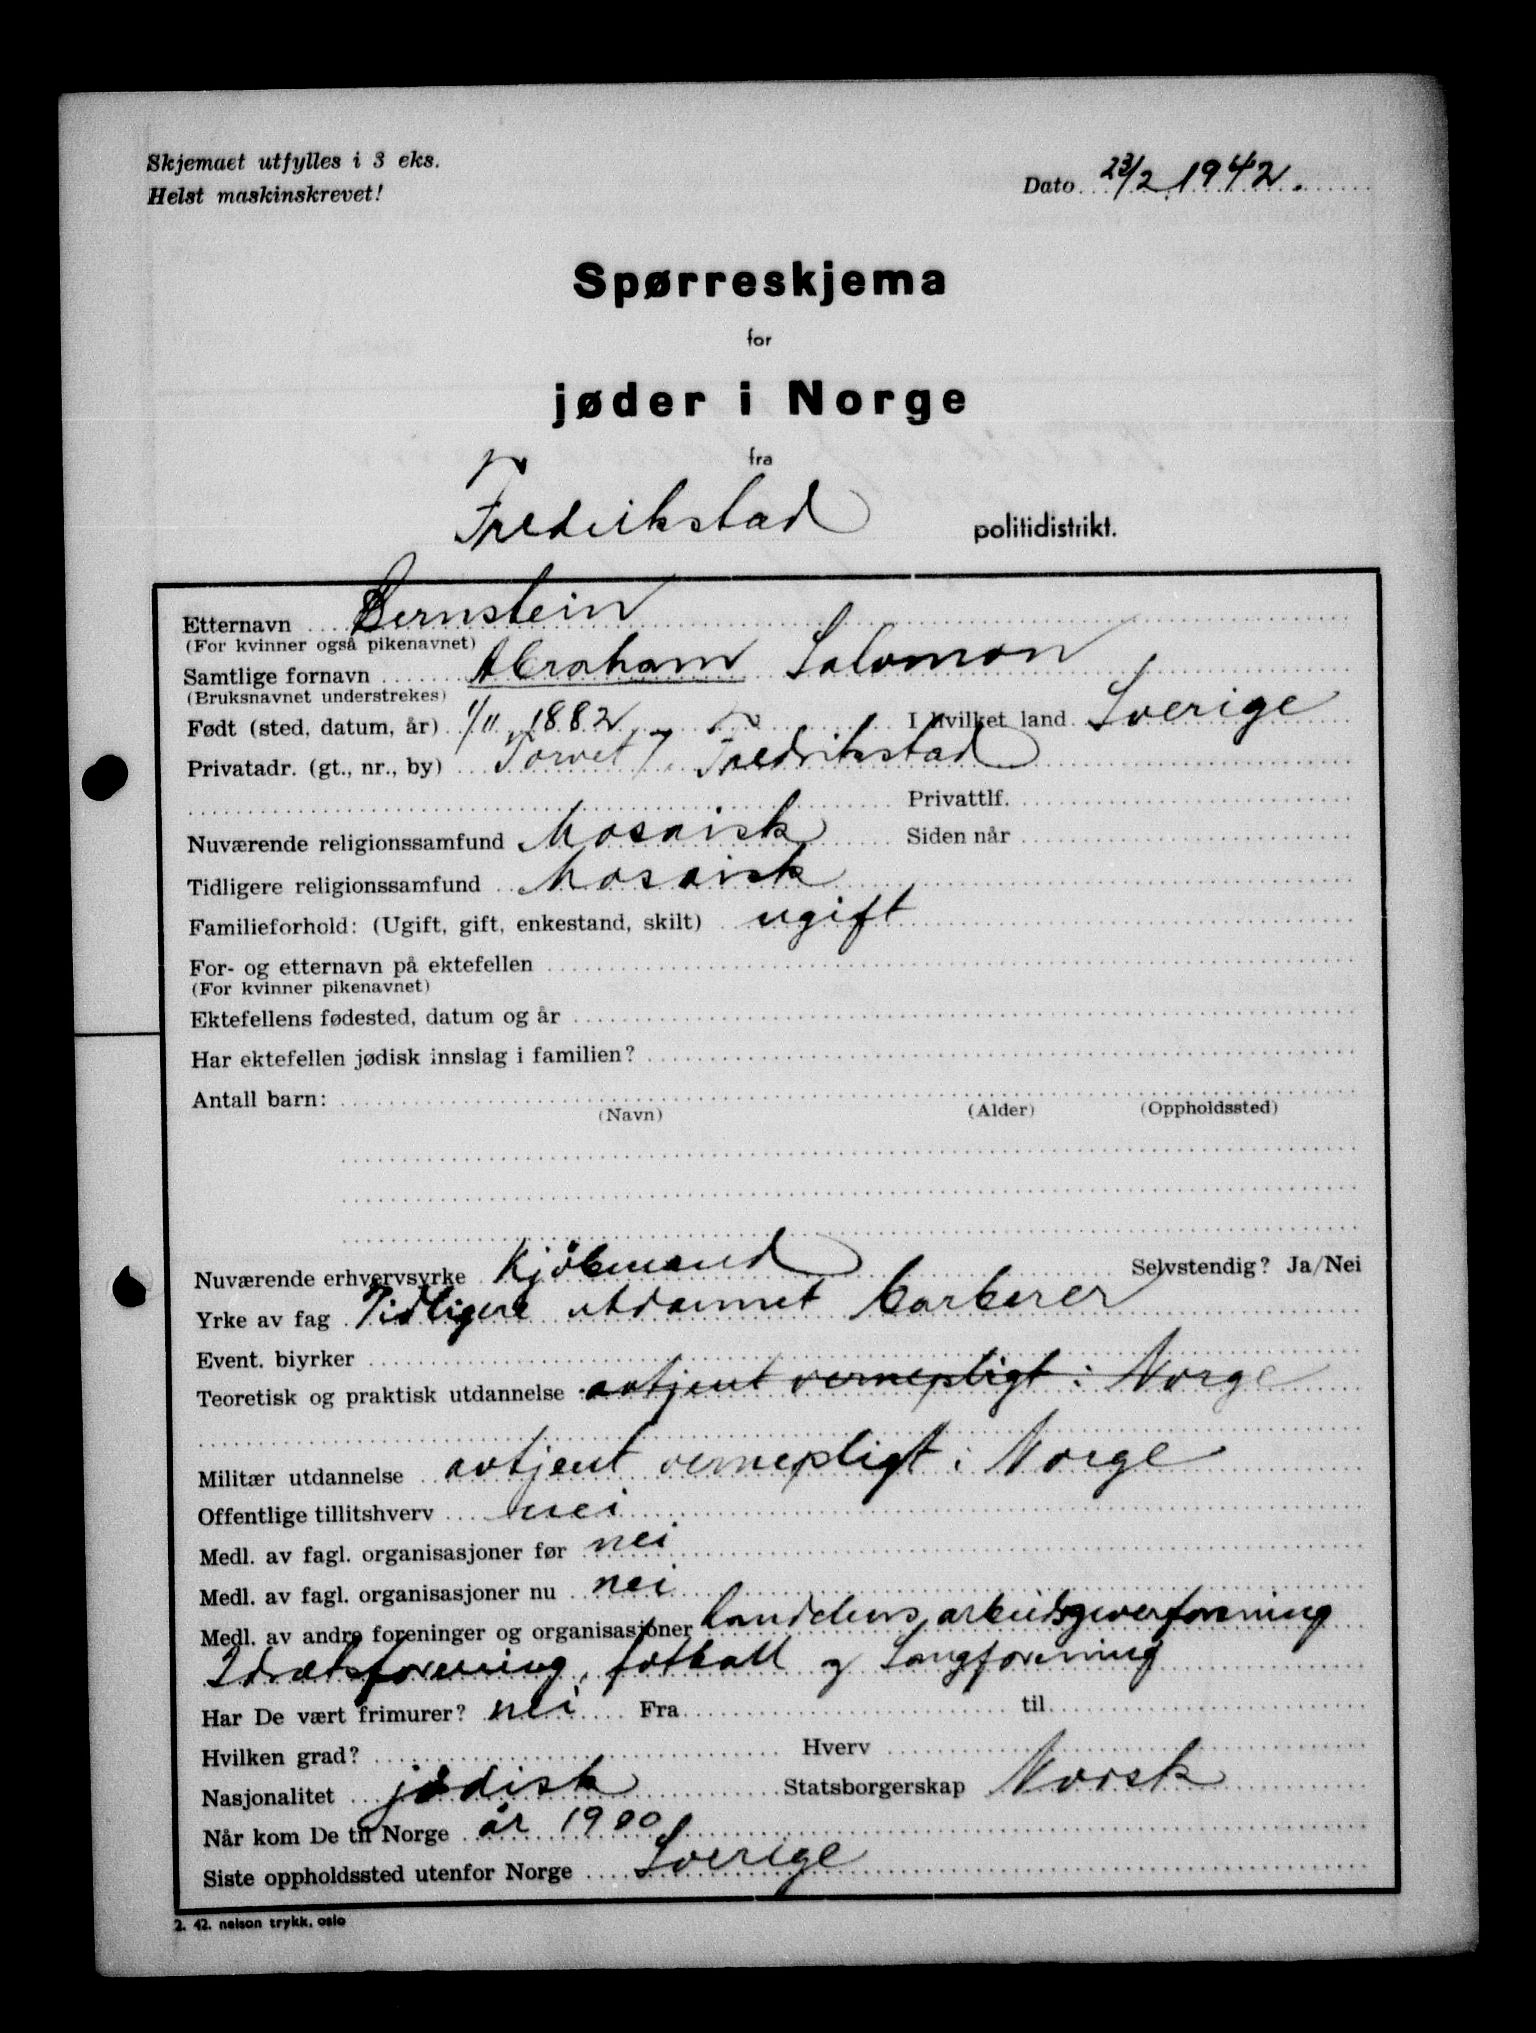 Skjemaet utfylles i 3 eks.
Helst maskinskrevet!
Dato 23/2 1942.
Spørreskjema
for
jøder i Norge
fra
Fredrikstad politidistrikt.
Etternavn Bernstein
(For kvinner også pikenavnet)
Samtlige fornavn Abraham Salomon
(Bruksnavnet understrekes)
Født (sted, datum, år) 1/11 1882 I hvilket land Sverige
Privatadr. (gt., nr., by) Torvet 7. Fredrikstad
Privattlf.
Nuværende religionssamfund Mosaisk Siden når
Tidligere religionssamfund Mosaisk
Familieforhold: (Ugift, gift, enkestand, skilt) ugift
For- og etternavn på ektefellen
(For kvinner pikenavnet)
Ektefellens fødested, datum og år
Har ektefellen jødisk innslag i familien?
Antall barn:
(Navn) (Alder) (Oppholdssted)
Nuværende erhvervsyrke Kjöbmand Selvstendig? Ja/Nei
Yrke av fag Tidligere utdannet barberer
Event. biyrker
Teoretisk og praktisk utdannelse avtjent vernepligt i Norge
Militær utdannelse avtjent vernepligt i Norge
Offentlige tillitshverv nei
Medl. av fagl. organisasjoner før nei
Medl. av fagl. organisasjoner nu nei
Medl. av andre foreninger og organisasjoner arbeidsgiverforening
Idrætsforening, fotball og Sangforening
Har De vært frimurer? nei Fra til
Hvilken grad? Hverv
Nasjonalitet jødisk Statsborgerskap Norsk
Når kom De til Norge år 1900
Siste oppholdssted utenfor Norge Sverige
2. 42. nelson trykk, oslo